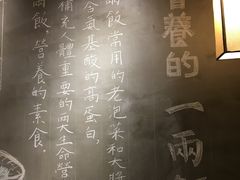 養的 一兩
兩飯常用的老泡菜和大醬
含氨基酸的高蛋白,
補充人體重要的四大生命營
兩飯,營養的素食.